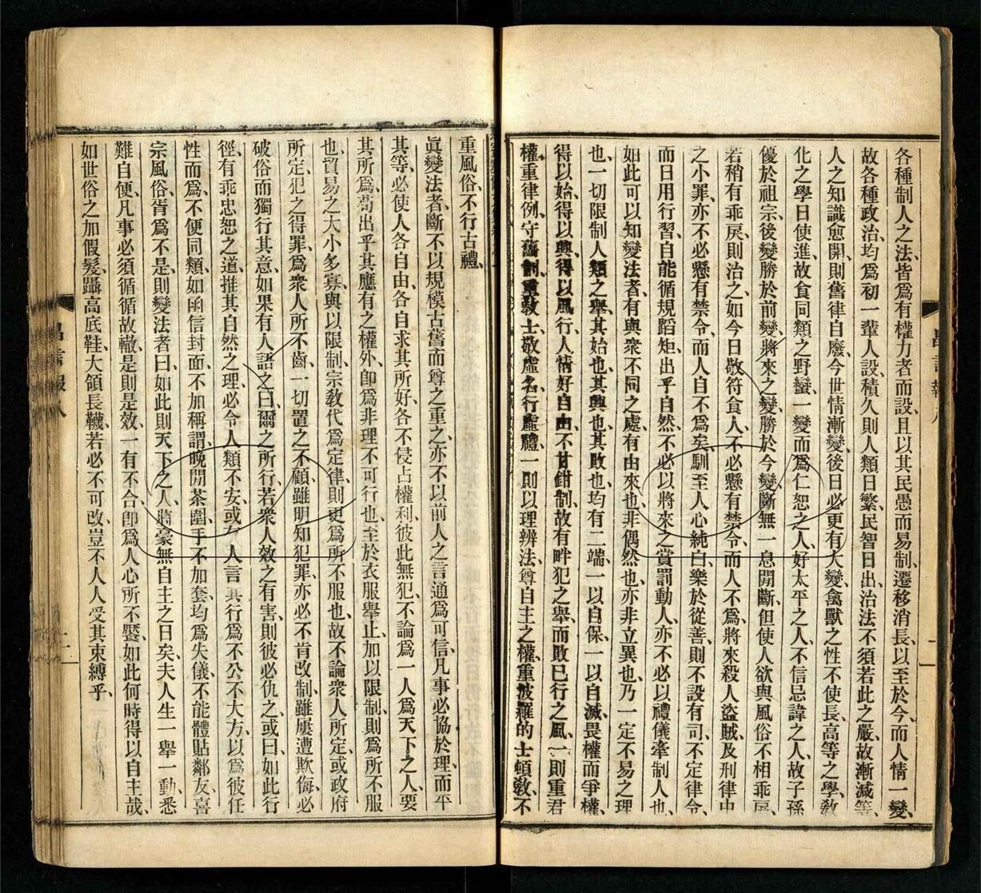 各種制人之法、皆爲有權力者而設、且以其民愚而易制、遷移消長、以至於今、而人情一變、
故各種政治均爲初一輩人設、積久則人類日繁、民智日出、治法不須若此之嚴、故漸減等、
人之知識愈開、則舊律自廢、今世情漸變、後日必更有大變、禽獸之性不使長、高等之學、敎
化之學日使進、故食同類之野蠻、一變而爲仁恕之人、好太平之人、不信忌諱之人、故子孫
優於祖宗、後變勝於前變、將來之變、勝於今變、斷無一息間斷、但使人欲與風俗不相乖戾、
若稍有乖戾則治之、如今日敬符食人、不必懸有禁令、而人不爲、將來殺人盜賊及刑律中
之小罪、亦不必懸有禁令、而人自不爲矣、馴至人心純白、樂於從善、則不設有司、不定律令、
而日用行習、自能循規蹈矩、出乎自然、不必以將來之賞罰動人、亦不必以禮儀牽制人也、
如此可以知變法者、有與衆不同之處、有由來也、非偶然也、亦非立異也、乃一定不易之理
也、一切限制人類之舉、其始也、其興也、其敗也、均有二端、一以自保、一以自滅、畏權而爭權、
得以始、得以興、得以風行、人情好自由、不甘鉗制、故有畔犯之舉、而敗已行之風、一則重君
權、重律例、守舊制、重敎士、敬虛名、行虛禮、一則以理辨法、尊自主之權、重波羅的士頓敎、不
重風俗、不行古禮、
眞變法者、斷不以規模古舊而尊之重之、亦不以前人之言通爲可信、凡事必協於理、而平
其等、必使人各自由、各自求其所好、各不侵占權利、彼此無犯、不論爲一人爲天下之人、要
其所爲、苟出乎其應有之權外、卽爲非理不可行也、至於衣服舉止、加以限制、則爲所不服
也、貿易之大小多寡、與以限制、宗敎代爲定律、則更爲所不服也、故不論衆人所定、或政府
所定、犯之得罪、爲衆人所不齒、一切置之不顧、雖明知犯罪、亦必不肯改制、雖屢遭欺侮、必
破俗而獨行其意、如果有人語之曰、爾之所行、若衆人效之有害、則彼必仇之、或曰、如此行
徑有乖忠恕之道、推其自然之理、必令人類不安、或有人言其行爲不公不大方、以爲彼任
性而爲、不便同類、如函信封面不加稱謂、晚間茶圍手不加套、均爲失儀、不能體貼鄰友、喜
宗風俗、胥爲不是、則變法者曰、如此則天下之人將豪無自主之日矣、夫人生一舉一動、悉
難自便、凡事必須循循故轍、是則是效、一有不合、卽爲人心所不饜、如此何時得以自主哉、
如世俗之加假髮、躡高底鞋、大領長韈、若必不可改、豈不人人受其束縛乎、
昌言報八